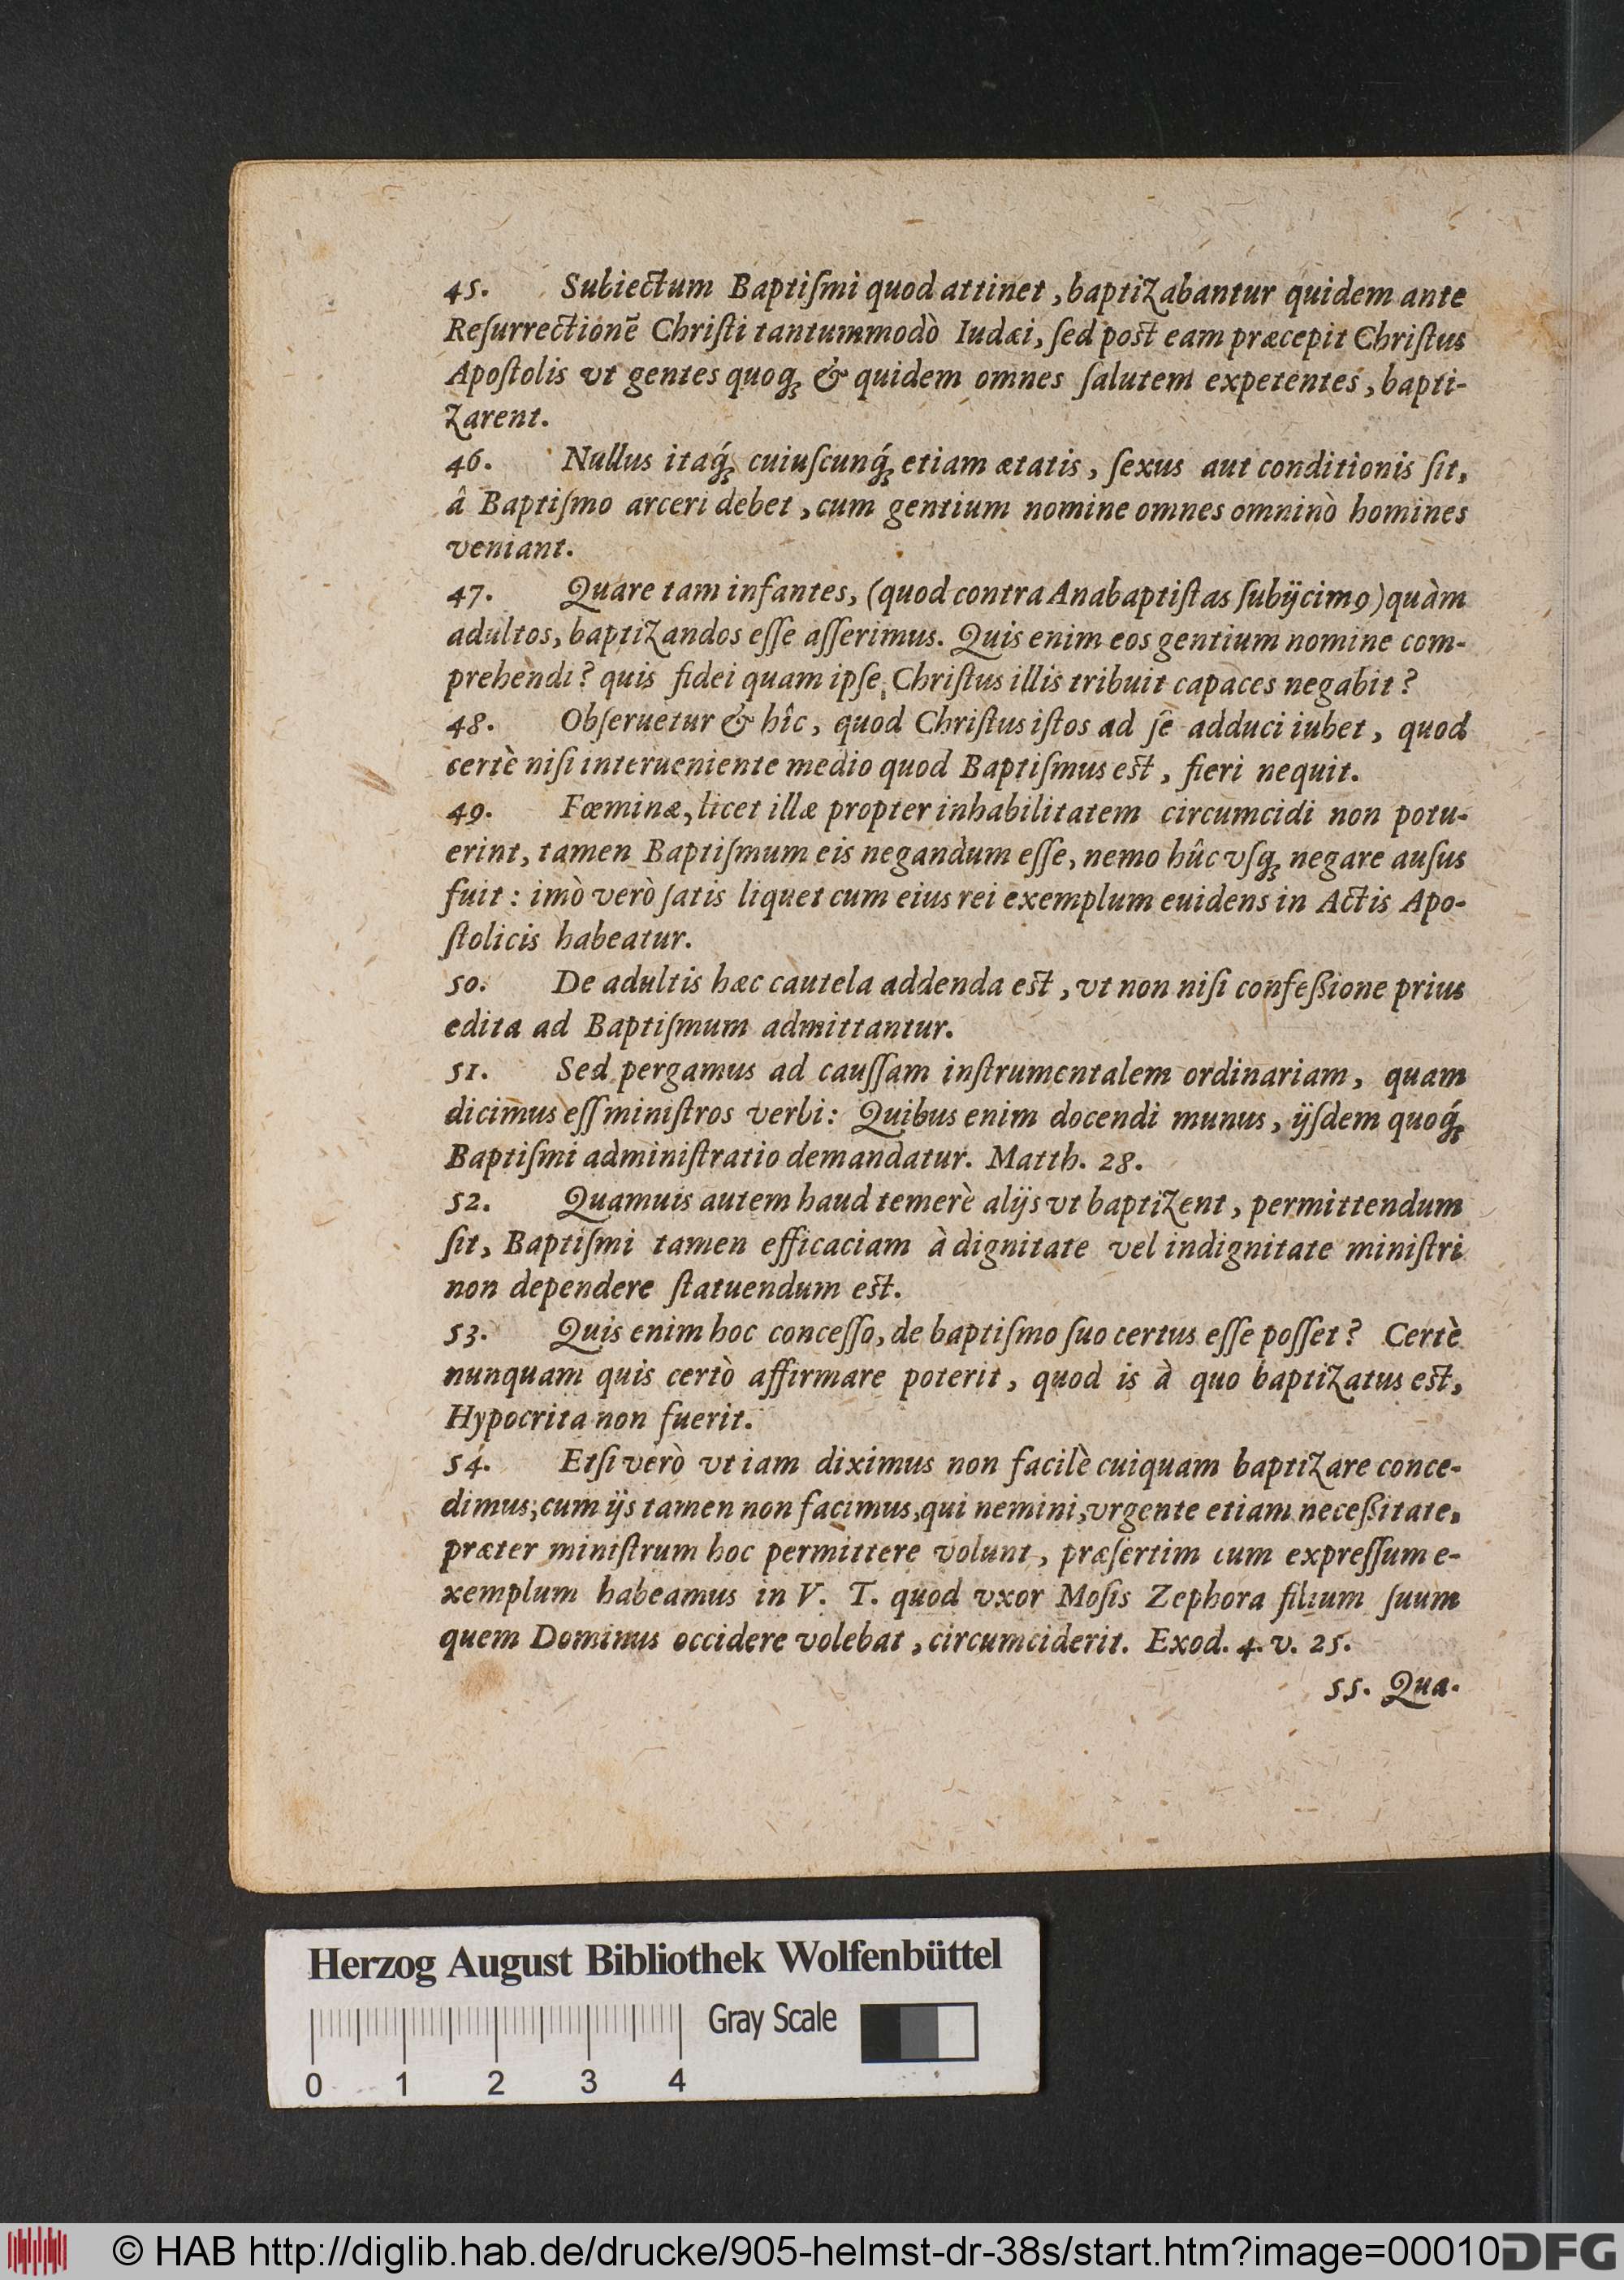 45. Subiectum Baptiſmi quod attinet, baptizabantur quidem ante
Reſurrectionē Chriſti tantummodò Iudæi, ſed post eam præcepit Chriſtus
Apoſtolis vt gentes quoqꝫ & quidem omnes ſalutem expetentes, bapti-
zarent.
46. Nullus itaq́ꝫ cuiuſcunq́ꝫ etiam ætatis, ſexus aut conditionis ſit,
â Baptiſmo arceri debet, cum gentium nomine omnes omninò homines
veniant.
47. Quare tam infantes, (quod contra Anabaptiſtas ſubijcimꝰ) quàm
adultos, baptizandos eſſe aſſerimus. Quis enim eos gentium nomine com-
prehendi? quis fidei quam ipſe Chriſtus illis tribuit capaces negabit?
48. Obſeruetur & hîc, quod Chriſtus iſtos ad ſe adduci iubet, quod
certè niſi interueniente medio quod Baptiſmus est, fieri nequit.
49. Fœminæ, licet illæ propter inhabilitatem circumcidi non potu-
erint, tamen Baptiſmum eis negandum eſſe, nemo hûc vſqꝫ negare auſus
fuit: imò verò ſatis liquet cum eius rei exemplum euidens in Actis Apo-
ſtolicis habeatur.
50. De adultis hæc cautela addenda est, vt non niſi confeßione prius
edita ad Baptiſmum admittantur.
51. Sed pergamus ad cauſſam inſtrumentalem ordinariam, quam
dicimus eſſ miniſtros verbi: Quibus enim docendi munus, ijſdem quoq́ꝫ
Baptiſmi adminiſtratio demandatur. Matth. 28.
52. Quamuis autem haud temerè alijs vt baptizent, permittendum
ſit, Baptiſmi tamen efficaciam à dignitate vel indignitate miniſtri
non dependere ſtatuendum est.
53. Quis enim hoc conceſſo, de baptiſmo ſuo certus eſſe poſſet? Certè
nunquam quis certò affirmare poterit, quod is à quo baptizatus est,
Hypocrita non fuerit.
54. Etſi verò vt iam diximus non facilè cuiquam baptizare conce-
dimus; cum ijs tamen non facimus, qui nemini, vrgente etiam neceßitate,
præter miniſtrum hoc permittere volunt, præſertim cum expreſſum e-
xemplum habeamus in V. T. quod vxor Moſis Zephora filium ſuum
quem Dominus occidere volebat, circumciderit. Exod. 4. v. 25.
55. Qua-
Herzog August Bibliothek Wolfenbüttel
Gray Scale
0 1 2 3 4
© HAB http://diglib.hab.de/drucke/905-helmst-dr-38s/start.htm?image=00010
DFG